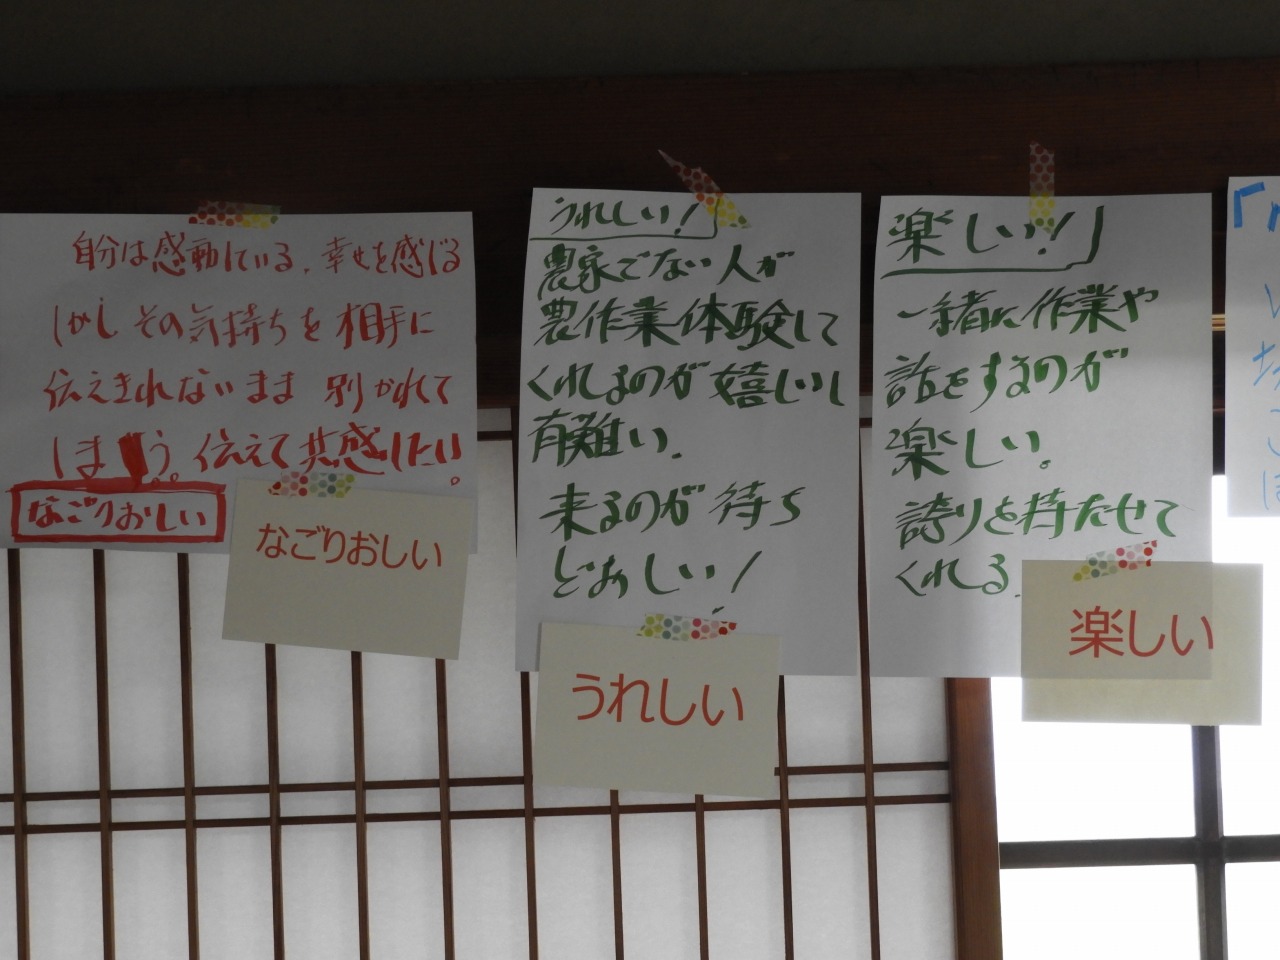 自分は感動している、幸せを感じる
しかしその気持ちを相手に
伝えきれないまま別かれて
しまう。伝えて共感したい。
なごりおしい
なごりおしい
うれしい!
農家でない人が
農作業体験して
くれるのが嬉しいし
有難い.
来るのが待ち
どおしい!
うれしい
楽しい!
一緒に作業や
話をするのが
楽しい。
誇りを持たせて
くれる.
楽しい